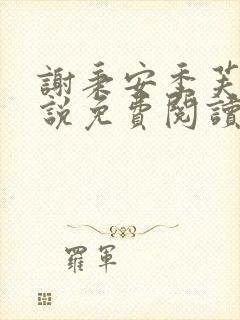 謝秉安季芙
說免費閱讀
羅軍